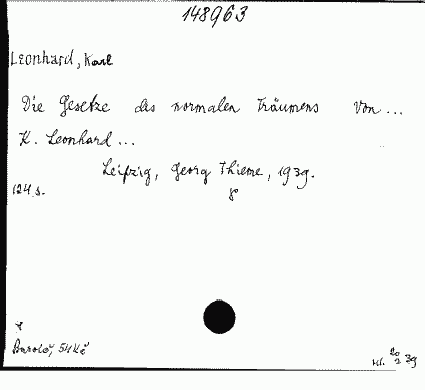 148963
Leonhard, Karl
Die Gesetze des normalen Träumens Von ...
K. Leonhard ...
Leipzig, Georg Thieme, 1939.
124 s. 8
54 Kč
20 2 39